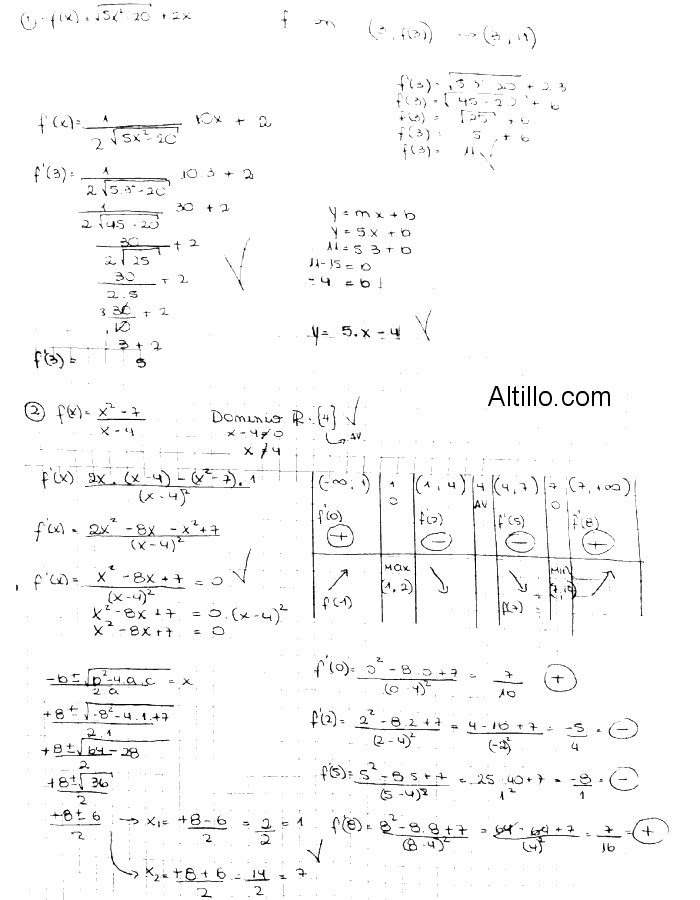 ① f(x) = √5x²-20 + 2x    f en (3, f(3)) → (3, 11)
f(3) = √5·3²-20 + 2·3
f(3) = √45-20 + 6
f(3) = √25 + 6
f(3) = 5 + 6
f(3) = 11 ✓
f'(x) = 1/(2√5x²-20) · 10x + 2
f'(3) = 1/(2√5·3²-20) · 10·3 + 2
1/(2√45-20) · 30 + 2
30/(2√25) + 2
30/(2·5) + 2
30/10 + 2
3 + 2
f'(3) = 5
✓
y = mx + b
y = 5x + b
11 = 5·3 + b
11-15 = b
-4 = b
y = 5·x - 4 ✓
Altillo.com
② f(x) = (x²-7)/(x-4)    Dominio R-{4} ✓
x-4≠0    ↳ AV
x≠4
f'(x) = (2x·(x-4) - (x²-7)·1)/(x-4)²
f'(x) = (2x²-8x-x²+7)/(x-4)²
f'(x) = (x²-8x+7)/(x-4)² = 0 ✓
x²-8x+7 = 0·(x-4)²
x²-8x+7 = 0
(-∞,1) | 1 | (1,4) | 4 | (4,7) | 7 | (7,+∞)
0 | AV | 0
f'(0) | f'(2) | f'(5) | f'(8)
+ | - | - | +
↗ | MAX | ↘ | ↘ | MIN | ↗
f(-1) | (1,2) | f(7)
(-b±√b²-4·a·c)/(2·a) = x
(+8±√-8²-4·1·+7)/(2·1)
(+8±√64-28)/2
(+8±√36)/2
(+8±6)/2 → x₁ = (+8-6)/2 = 2/2 = 1
→ x₂ = (+8+6)/2 = 14/2 = 7 ✓
f'(0) = (0²-8·0+7)/(0-4)² = 7/16 +
f'(2) = (2²-8·2+7)/(2-4)² = (4-16+7)/(-2)² = -5/4 = -
f'(5) = (5²-8·5+7)/(5-4)² = (25-40+7)/1² = -8/1 = -
f'(8) = (8²-8·8+7)/(8-4)² = (64-64+7)/(4)² = 7/16 = +